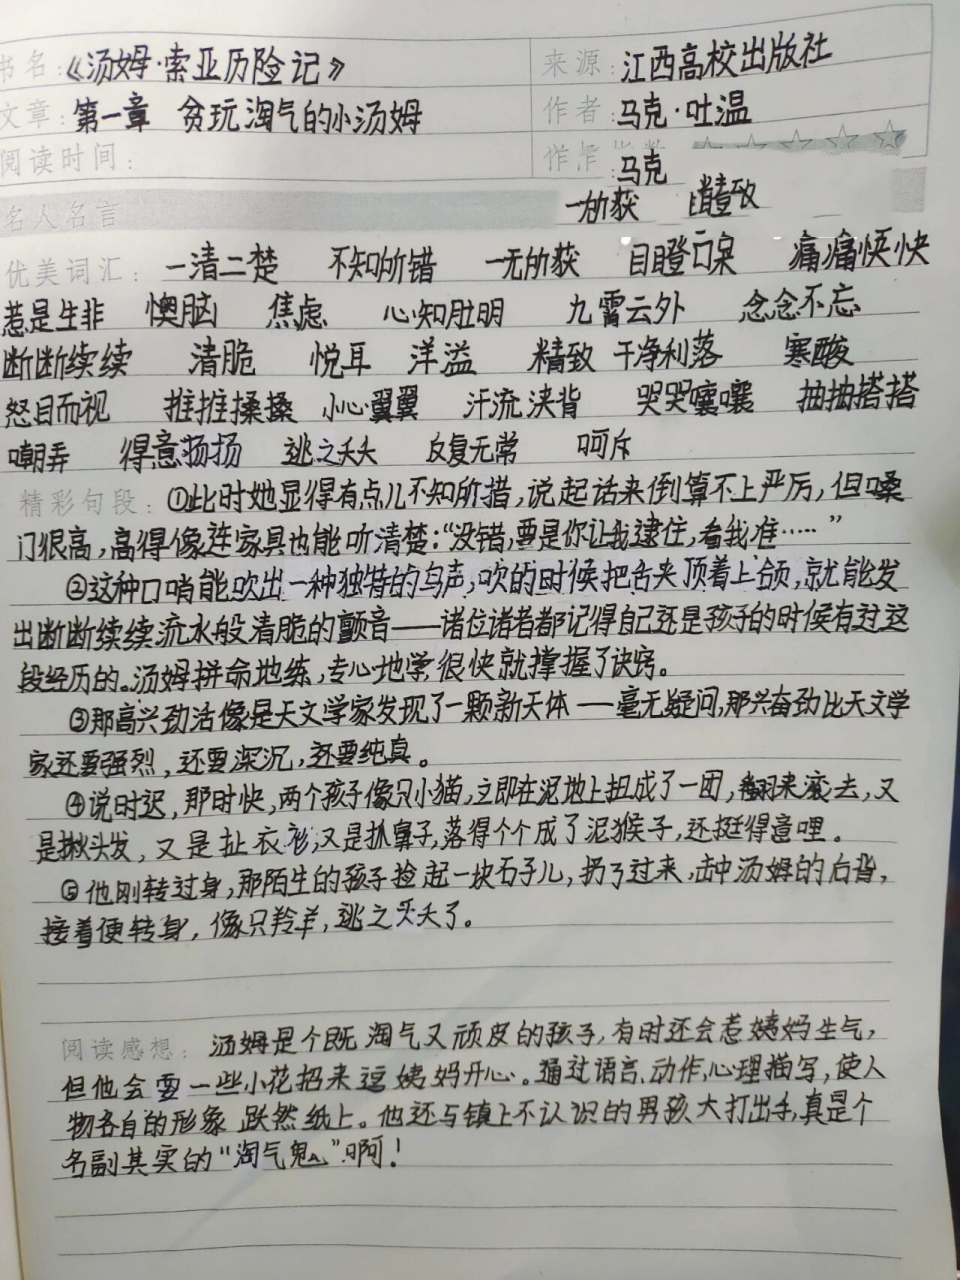 书名:《汤姆·索亚历险记》 来源:江西高校出版社
文章:第一章 贪玩淘气的小汤姆 作者:马克·吐温
阅读时间: 马克
名人名言 精致
优美词汇: 一清二楚 不知所错 一无所获 目瞪口呆 痛痛快快
惹是生非 懊脑 焦虑 心知肚明 九霄云外 念念不忘
断断续续 清脆 悦耳 洋溢 精致 干净利落 寒酸
怒目而视 推推搡搡 小心翼翼 汗流浃背 哭哭嚷嚷 抽抽搭搭
嘲弄 得意扬扬 逃之夭夭 反复无常 呵斥
精彩句段: ①此时她显得有点儿不知所措,说起话来倒算不上严厉,但嗓
门很高,高得像连家具也能听清楚:“没错,要是你让我逮住,看我准……”
②这种口哨能吹出一种独特的鸟声,吹的时候把舌夹顶着上颌,就能发
出断断续续流水般清脆的颤音——诸位诸者都记得自己还是孩子的时候有过这
段经历的。汤姆拼命地练,专心地学,很快就撑握了诀窍。
③那高兴劲活像是天文学家发现了一颗新天体——毫无疑问,那兴奋劲比天文学
家还要强烈,还要深沉,还要纯真。
④说时迟,那时快,两个孩子像只小猫,立即在泥地上扭成了一团,翻来滚去,又
是揪头发,又是扯衣衫,又是抓鼻子,落得个个成了泥猴子,还挺得意哩。
⑤他刚转过身,那陌生的孩子捡起一块石子儿,扔了过来,击中汤姆的后背,
接着便转身,像只羚羊,逃之夭夭了。
阅读感想: 汤姆是个既淘气又顽皮的孩子,有时还会惹姨妈生气,
但他会耍一些小花招来逗姨妈开心。通过语言、动作、心理描写,使人
物各自的形象跃然纸上。他还与镇上不认识的男孩大打出手,真是个
名副其实的“淘气鬼”啊!